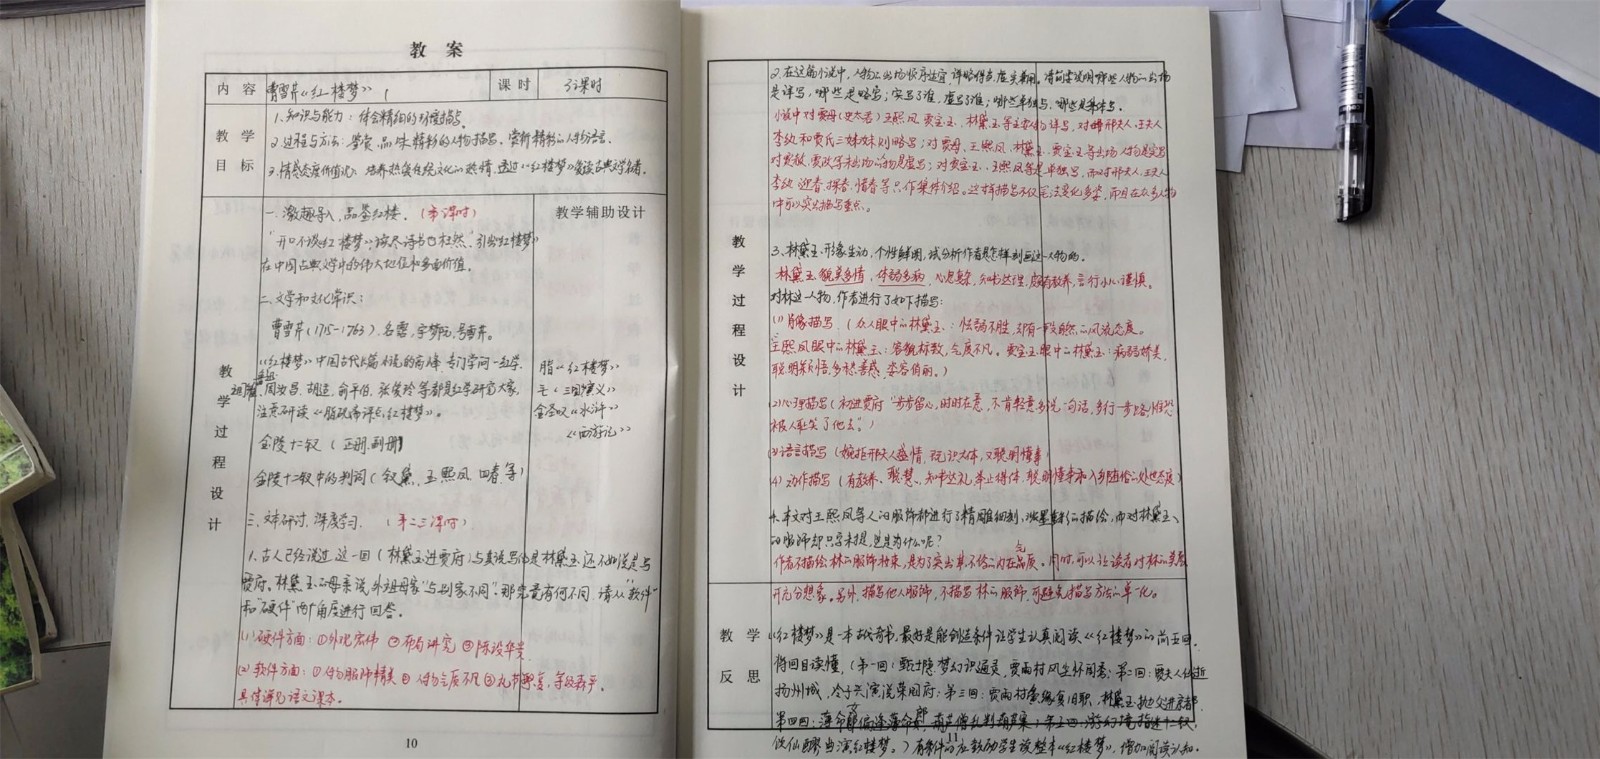 教 案
内 容 曹雪芹《红楼梦》 课 时 3课时
教 学 目 标
1.知识与能力：体会精细的环境描写。
2.过程与方法：鉴赏、品味精彩的人物描写，赏析精彩的人物语言。
3.情感态度价值观：培养热爱传统文化的热情，透过《红楼梦》爱读古典文学名著。
教 学 过 程 设 计
教学辅助设计
一.激趣导入，品鉴红楼。（第1课时）
"开口不谈《红楼梦》，读尽诗书也枉然"，引出《红楼梦》
在中国古典文学中的伟大地位和多面价值。
二.文学和文化常识：
曹雪芹（1715-1763）.名霑，字梦阮，号雪芹。
《红楼梦》中国古代长篇小说的高峰，专门学问—红学.
周汝昌、胡适、俞平伯、张爱玲等都是红学研究大家，
注意研读《脂砚斋评点红楼梦》。
金陵十二钗（正册.副册）
金陵十二钗中的判词（钗黛、王熙凤 四春.等）
脂《红楼梦》
毛《三国演义》
金圣叹《水浒》
《西游记》
三.文本研讨，深度学习.（第二三课时）
1.古人已经说过，这一回（林黛玉进贾府）与其说写的是林黛玉，还不如说是写
贾府。林黛玉的母亲说，外祖母家"与别家不同"。那究竟有何不同，请从"软件"
和"硬件"两个角度进行回答。
(1)硬件方面：①外观宏伟 ②布局讲究 ③陈设华贵.
(2)软件方面：①仆妇服饰精美 ② 人物气质不凡 ③礼节繁复，等级森严。
具体详见语文课本。
10
2.在这篇小说中，人物的出场顺序适宜，详略得当，虚实兼用。请简要说明哪些人物的出场
是详写，哪些是略写；实写了谁，虚写了谁；哪些单独写，哪些是集体写。
小说中对贾母(史太君)王熙凤 贾宝玉、林黛玉等主要人物详写，对邢夫人、王夫人
李纨和贾氏三姊妹则略写；对贾母、王熙凤、林黛玉、贾宝玉等出场人物是实写
对贾赦、贾政等未出场的人物是虚写；对贾宝玉、王熙凤等是单独写，而对邢夫人、王夫人
李纨、迎春、探春、惜春等只作集体介绍。这样描写不仅笔法变化多姿，而且在众多人物
中可以突出描写重点。
教 学 过 程 设 计
3.林黛玉形象生动，个性鲜明，试分析作者是怎样刻画这一人物的。
林黛玉貌美多情，体弱多病，心思敏，知书达理，颇有教养，言行小心谨慎。
对林这一人物，作者进行了如下描写：
(1)肖像描写.（众人眼中的林黛玉：怯弱不胜，却有一段自然的风流态度。
王熙凤眼中的林黛玉：容貌标致，气度不凡。贾宝玉眼中的林黛玉：病弱娇美，
聪明颖悟，多愁善感，姿容俏丽。）
(2)心理描写（初进贾府"步步留心，时时在意，不肯轻意多说一句话，多行一步路，惟恐
被人耻笑了他去。"）
(3)语言描写（婉拒邢夫人盛情，既识大体，又聪明懂事）
(4)动作描写（有教养、聪慧、知书达礼，举止得体，聪明懂事和入乡随俗的处世态度）
4.本文对王熙凤等人的服饰都进行了精雕细刻，浓墨重彩的描绘，而对林黛玉
的服饰却只字未提，这是为什么呢？
作者不描绘林的服饰妆束，是为了突出其不俗的内在气质。同时，可以让读者对林的美展
开充分想象。另外，描写他人服饰，不描写林的服饰，可避免描写方法的单一化。
教 学 反 思
《红楼梦》是一本古代奇书，最好是能创造条件让学生认真阅读《红楼梦》的前五回.
将回目读懂，（第一回：甄士隐梦幻识通灵，贾雨村风尘怀闺秀；第二回：贾夫人仙逝
扬州城，冷子兴演说荣国府；第三回：贾雨村夤缘复旧职，林黛玉抛父进京都
第四回：薄命女偏逢薄命郎，葫芦僧乱判葫芦案；第五回：游幻境指迷十二钗，
饮仙醪曲演红楼梦。）有条件的应鼓励学生读整本《红楼梦》，增加阅读认知.
11